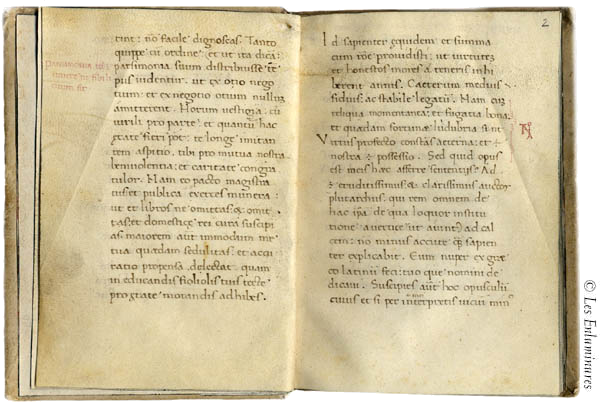 tint: nō facile dignoscas. Tanto
quippe cū ordine: et ut ita dicā:
parsimonia suum distribuisse tē
pus uidentur. ut ex otio nego
tium: et ex negotio otium nullum
amitterent. Horum uestigia: cū
uirili pro parte: et quantū hac
ętate fieri pōt: te longe imitan
tem aspitio. tibi pro mutua nostra
beniuolentia: et caritate congra
tulor. Nam eo pacto magistra
tus et publica exerces munera:
ut et libros ne omittas: &
et domesticę rei cura suscipi
as. maiorem aūt inmodum me
tua quędam sedulitas: et
propensa delectat quam
in educandis filiolis tuis
pro ętate morandis adhibes.
2
Id sapienter equidem et summa
cum rōne prouidisti: ut uirtutes
et honestos mores a teneris imbi
berent annis. Caeterum medius
fidius: ac stabile legatū. Nam
reliqua momentanea: et fugatia bona
et quędam fortunę ludibria sunt
Virtus profecto constās aeterna: et
nostra ÷ possessio. Sed quid opus
est meis hac afferre sententiis? Ad
eruditissimus & clarissimus auctor
plutarchus. qui rem omnem de
hac ipa de qua loquor institu
tione a uertice ut aiunt ad cal
cem: nō minus accute quam sapien
ter explicabit. Eum nuper ex gręc
o latinū feci: tuo que nomini de
dicaui. Suscipies aūt hoc opusculū
cuius et si per interpretis uiciū
© Les Enluminures